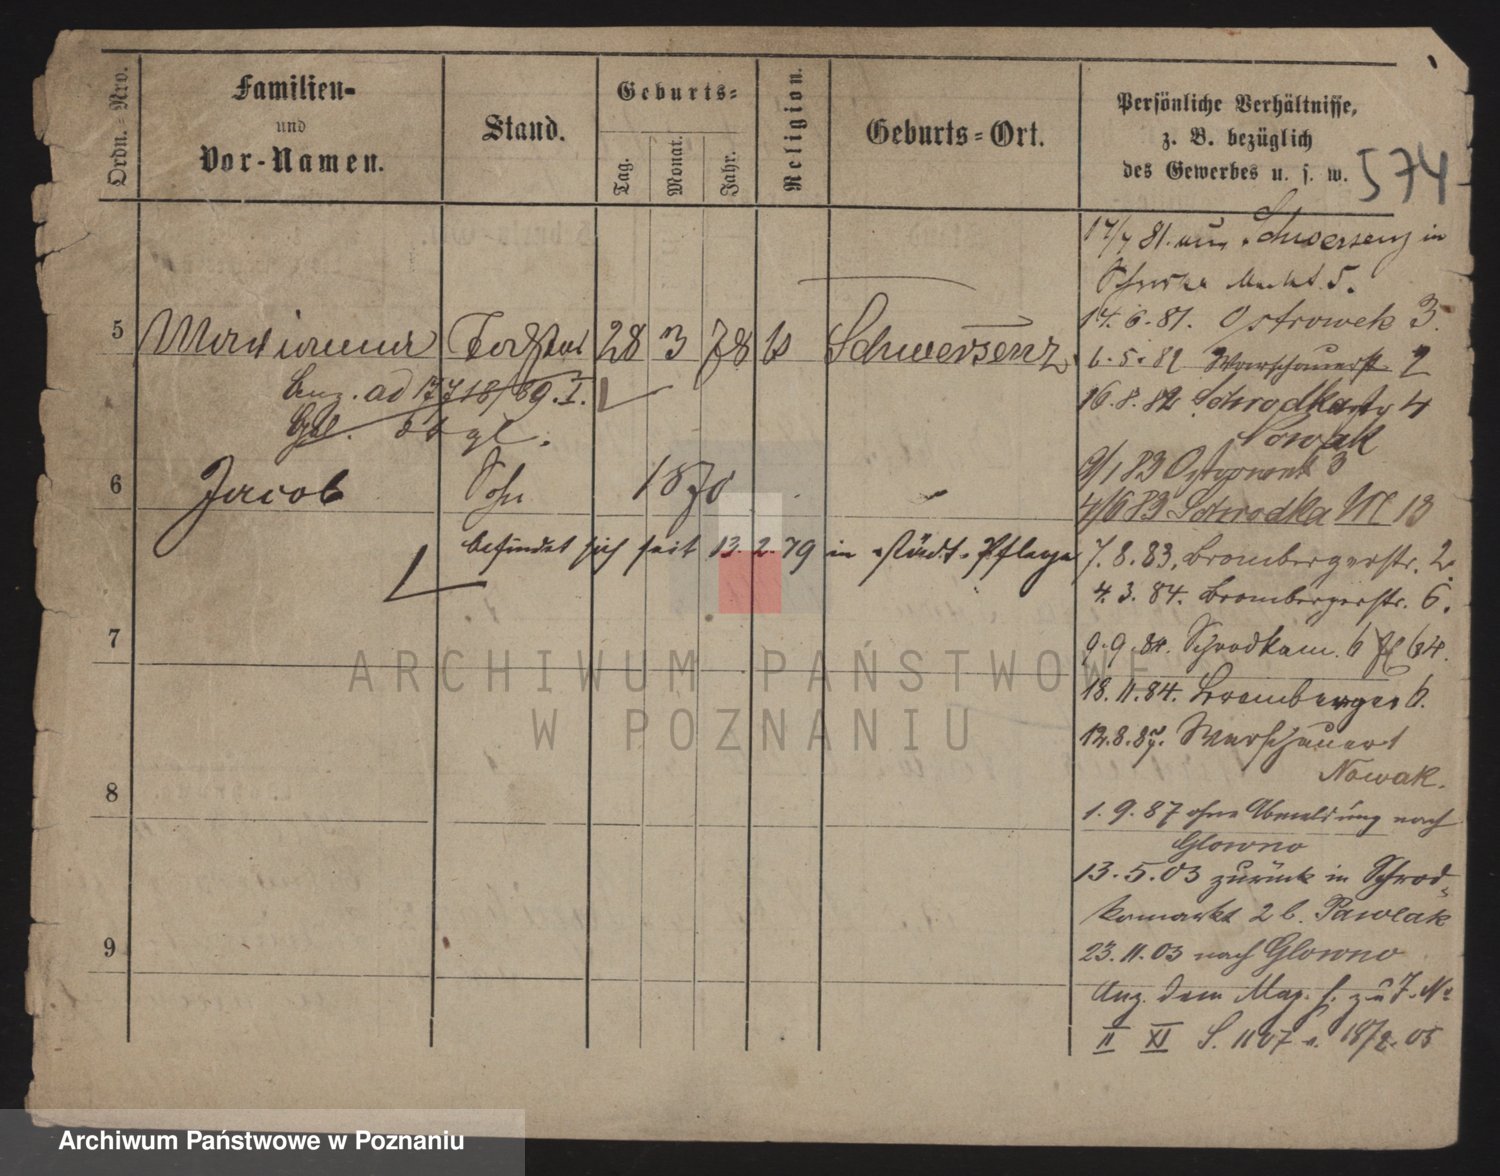 Ordn.-Nro.
Familien-
und
Vor-Namen.
Stand.
Geburts-
Tag.
Monat.
Jahr.
Religion.
Geburts-Ort.
Persönliche Verhältnisse,
z. B. bezüglich
des Gewerbes u. s. w.
574
17/7 81. aus Schwersenz in
5.
5 Marianna Tochter 28 3 78 Schwersenz
14. 6. 81. Ostrowek 3.
6. 5. 82 Warschauerst 2
ad 17718/69. I.
16. 8. 82 Schrodka 4
Nowak
6 Jacob Sohn 1870
9/1 83 Ostrowek 3
4/6 83 Schrodka M 13
befindet sich seit 13. 2. 79 in städt. Pflege
7. 8. 83. Brombergerstr. 2.
4. 3. 84. Brombergerstr. 6.
7
9. 9. 84. Schrodkam. 6
18. 11. 84. Bromberger 6.
12. 8. 87. Warschauer
Nowak.
8
1. 9. 87 ohne Abmeldung nach
Glowno
13. 5. 03 zurück in Schrod-
kamarkt 2 b. Pawlak
9
23. 11. 03 nach Glowno
Anz. dem Mag. zu J. No
II XI S. 1107 18/2. 05
ARCHIWUM PAŃSTWOWE
W POZNANIU
Archiwum Państwowe w Poznaniu